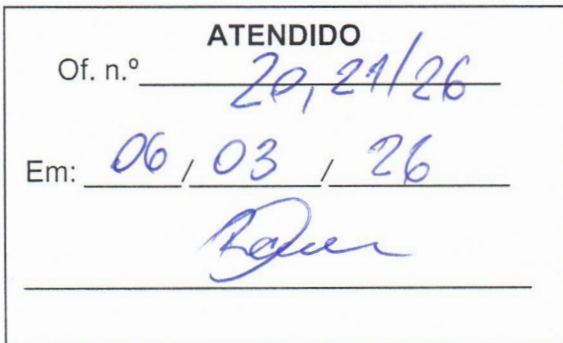 ATENDIDO
Of. n.º 20, 21/26
Em: 06 / 03 / 26